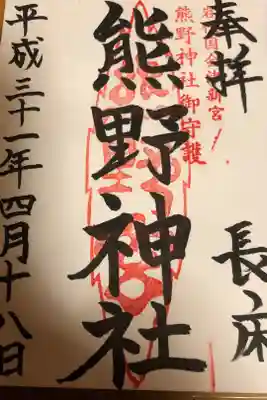 奉拝
長床
熊野神社
熊野神社御守護
平成三十一年四月十八日